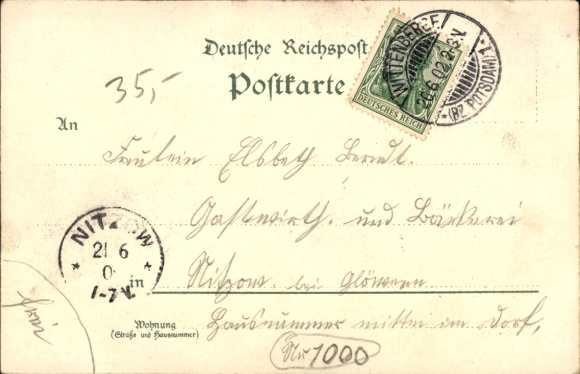 Deutsche Reichspost
Postkarte
35,-
DEUTSCHES REICH
WITTENBERGE
20.6.02.
*(BZ. POTSDAM)*
An
Fräulein Elsbeth Berndt.
Gastwirth. und Bäckerei
NITZOW
21 6
0
1-2 V.
in
Nitzow bei Glöwen
Wohnung
(Straße und Hausnummer)
Hausnummer mitten im Dorf,
Nr 1000
frei